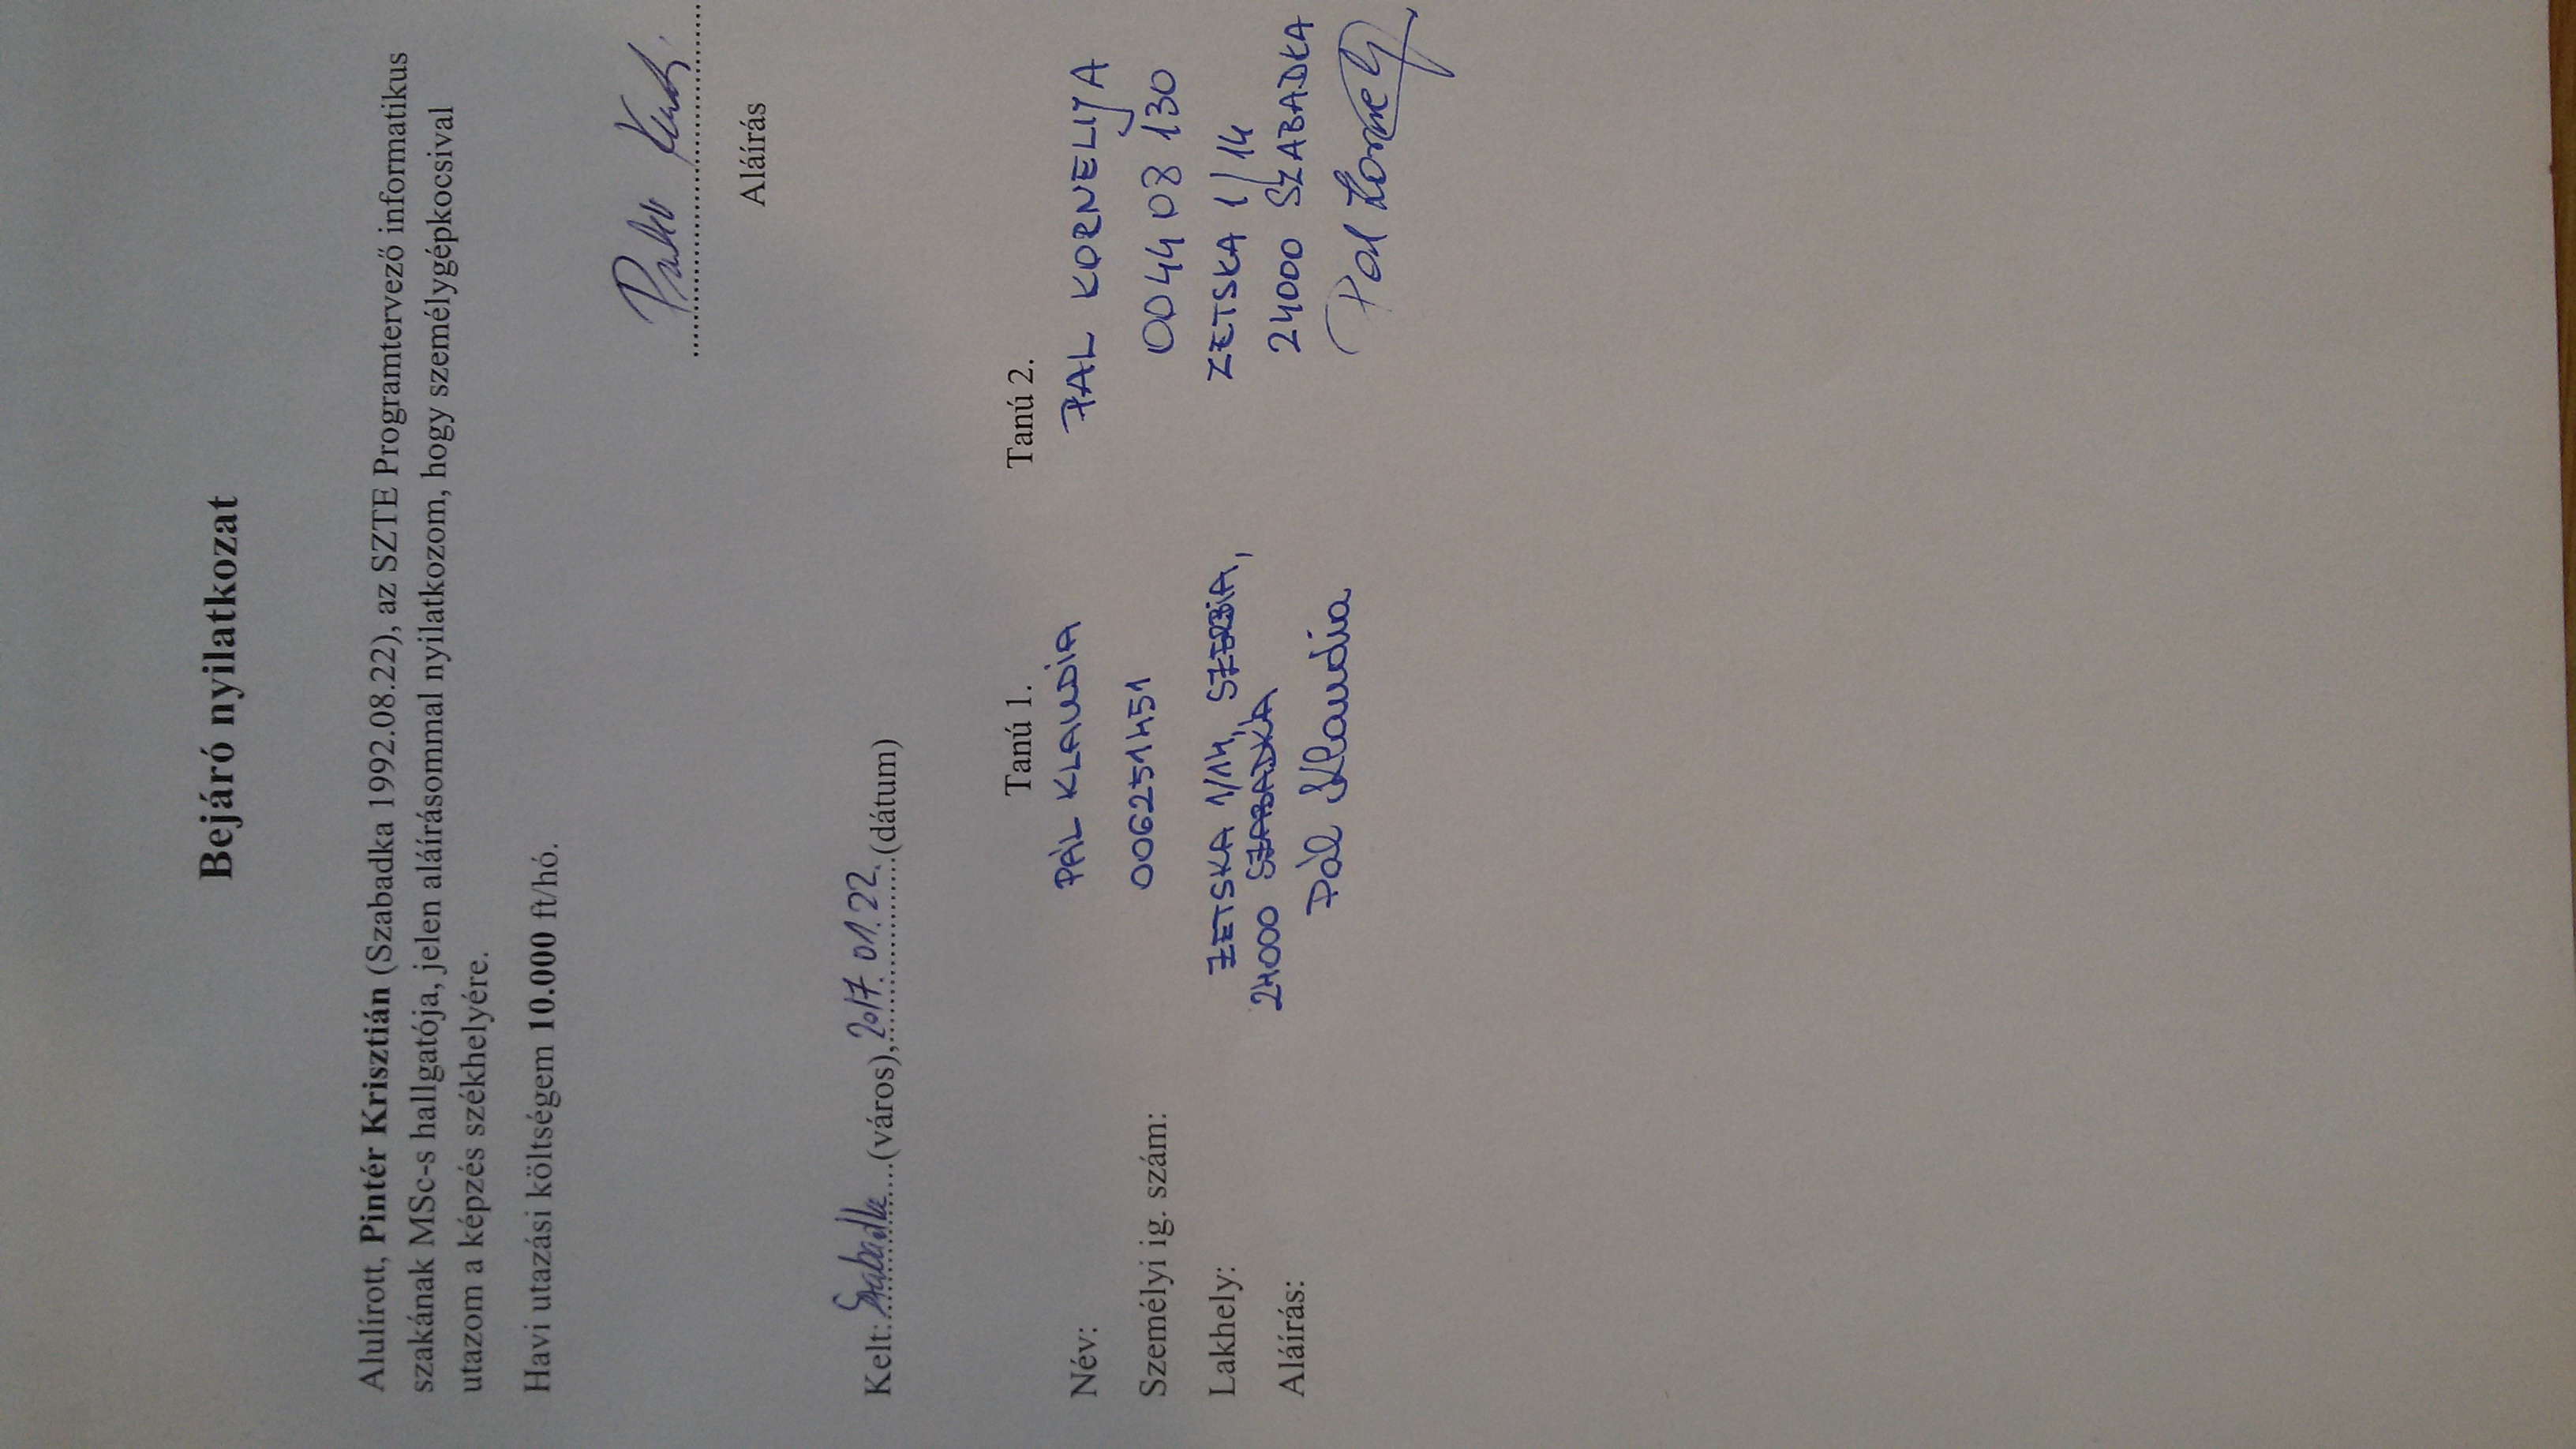 Bejáró nyilatkozat
Alulírott, Pintér Krisztián (Szabadka 1992.08.22), az SZTE Programtervező informatikus
szakának MSc-s hallgatója, jelen aláírásommal nyilatkozom, hogy személygépkocsival
utazom a képzés székhelyére.
Havi utazási költségem 10.000 ft/hó.
Aláírás
Kelt: Szabadka (város), 2017. 01. 22. (dátum)
Tanú 1. Tanú 2.
Név: PÁL KLAUDIA PAL KORNELIJA
Személyi ig. szám: 006251451 004408130
Lakhely: ZETSKA 1/14, SZERBIA, ZETSKA 1/14
24000 SZABADKA 24000 SZABADKA
Aláírás: Pál Klaudia Pal